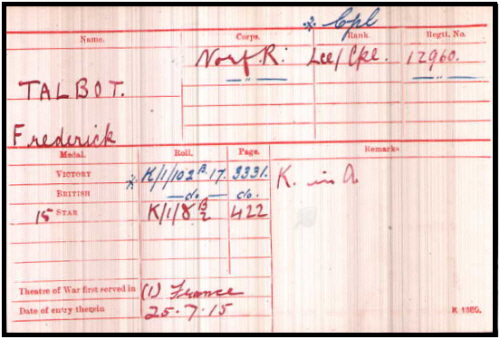 ※ Cpl
Name. Corps. Rank. Regtl. No.
Norf. R. Lce/Cpl. 12960.
TALBOT.
Frederick
Medal. Roll. Page. Remarks
VICTORY ※ K/1/102 B.17. 3331. K. in A
BRITISH —do— do.
15 STAR K/1/8 B2 422
Theatre of War first served in (1) France
Date of entry therein 25-7-15
K 1380.